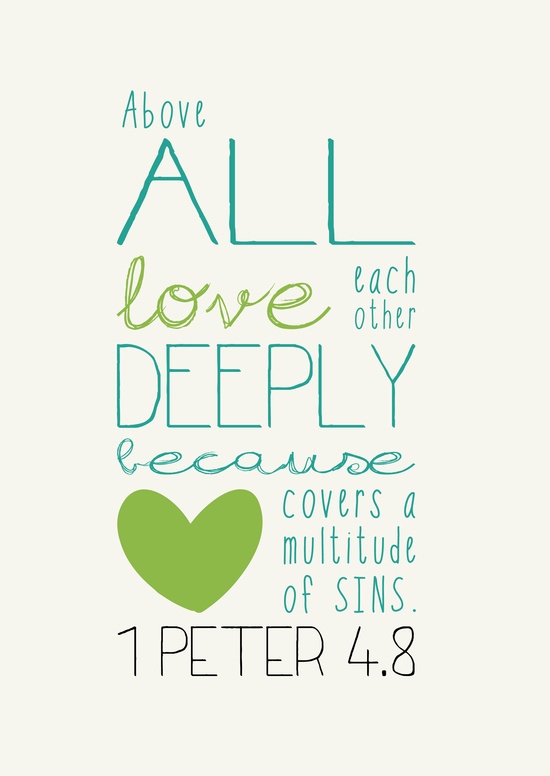 Above
ALL
love each
other
DEEPLY
because
covers a
multitude
of SINS.
1 PETER 4.8